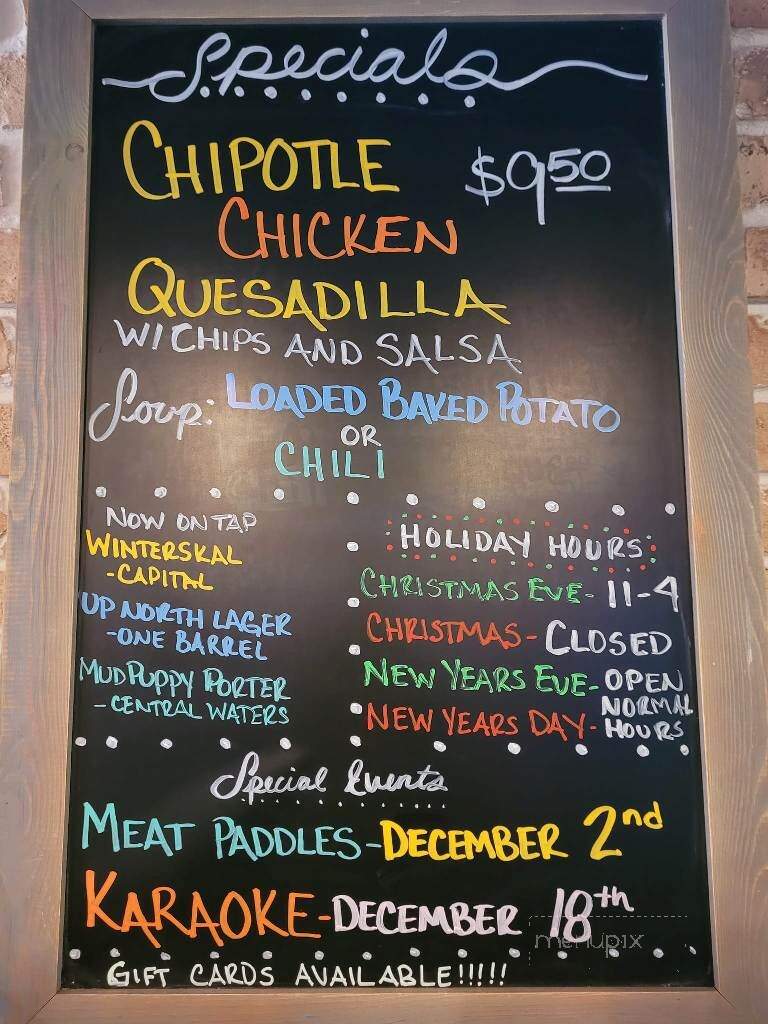 Specials
CHIPOTLE $9.50
CHICKEN
QUESADILLA
W/ CHIPS AND SALSA
Soup: LOADED BAKED POTATO
OR
CHILI
NOW ON TAP
WINTERSKAL
-CAPITAL
UP NORTH LAGER
-ONE BARREL
MUDPUPPY PORTER
-CENTRAL WATERS
HOLIDAY HOURS:
CHRISTMAS EVE- 11-4
CHRISTMAS- CLOSED
NEW YEARS EVE- OPEN
NORMAL
NEW YEARS DAY- HOURS
Special Events
MEAT PADDLES-DECEMBER 2nd
KARAOKE-DECEMBER 18th
menupix
GIFT CARDS AVAILABLE!!!!!